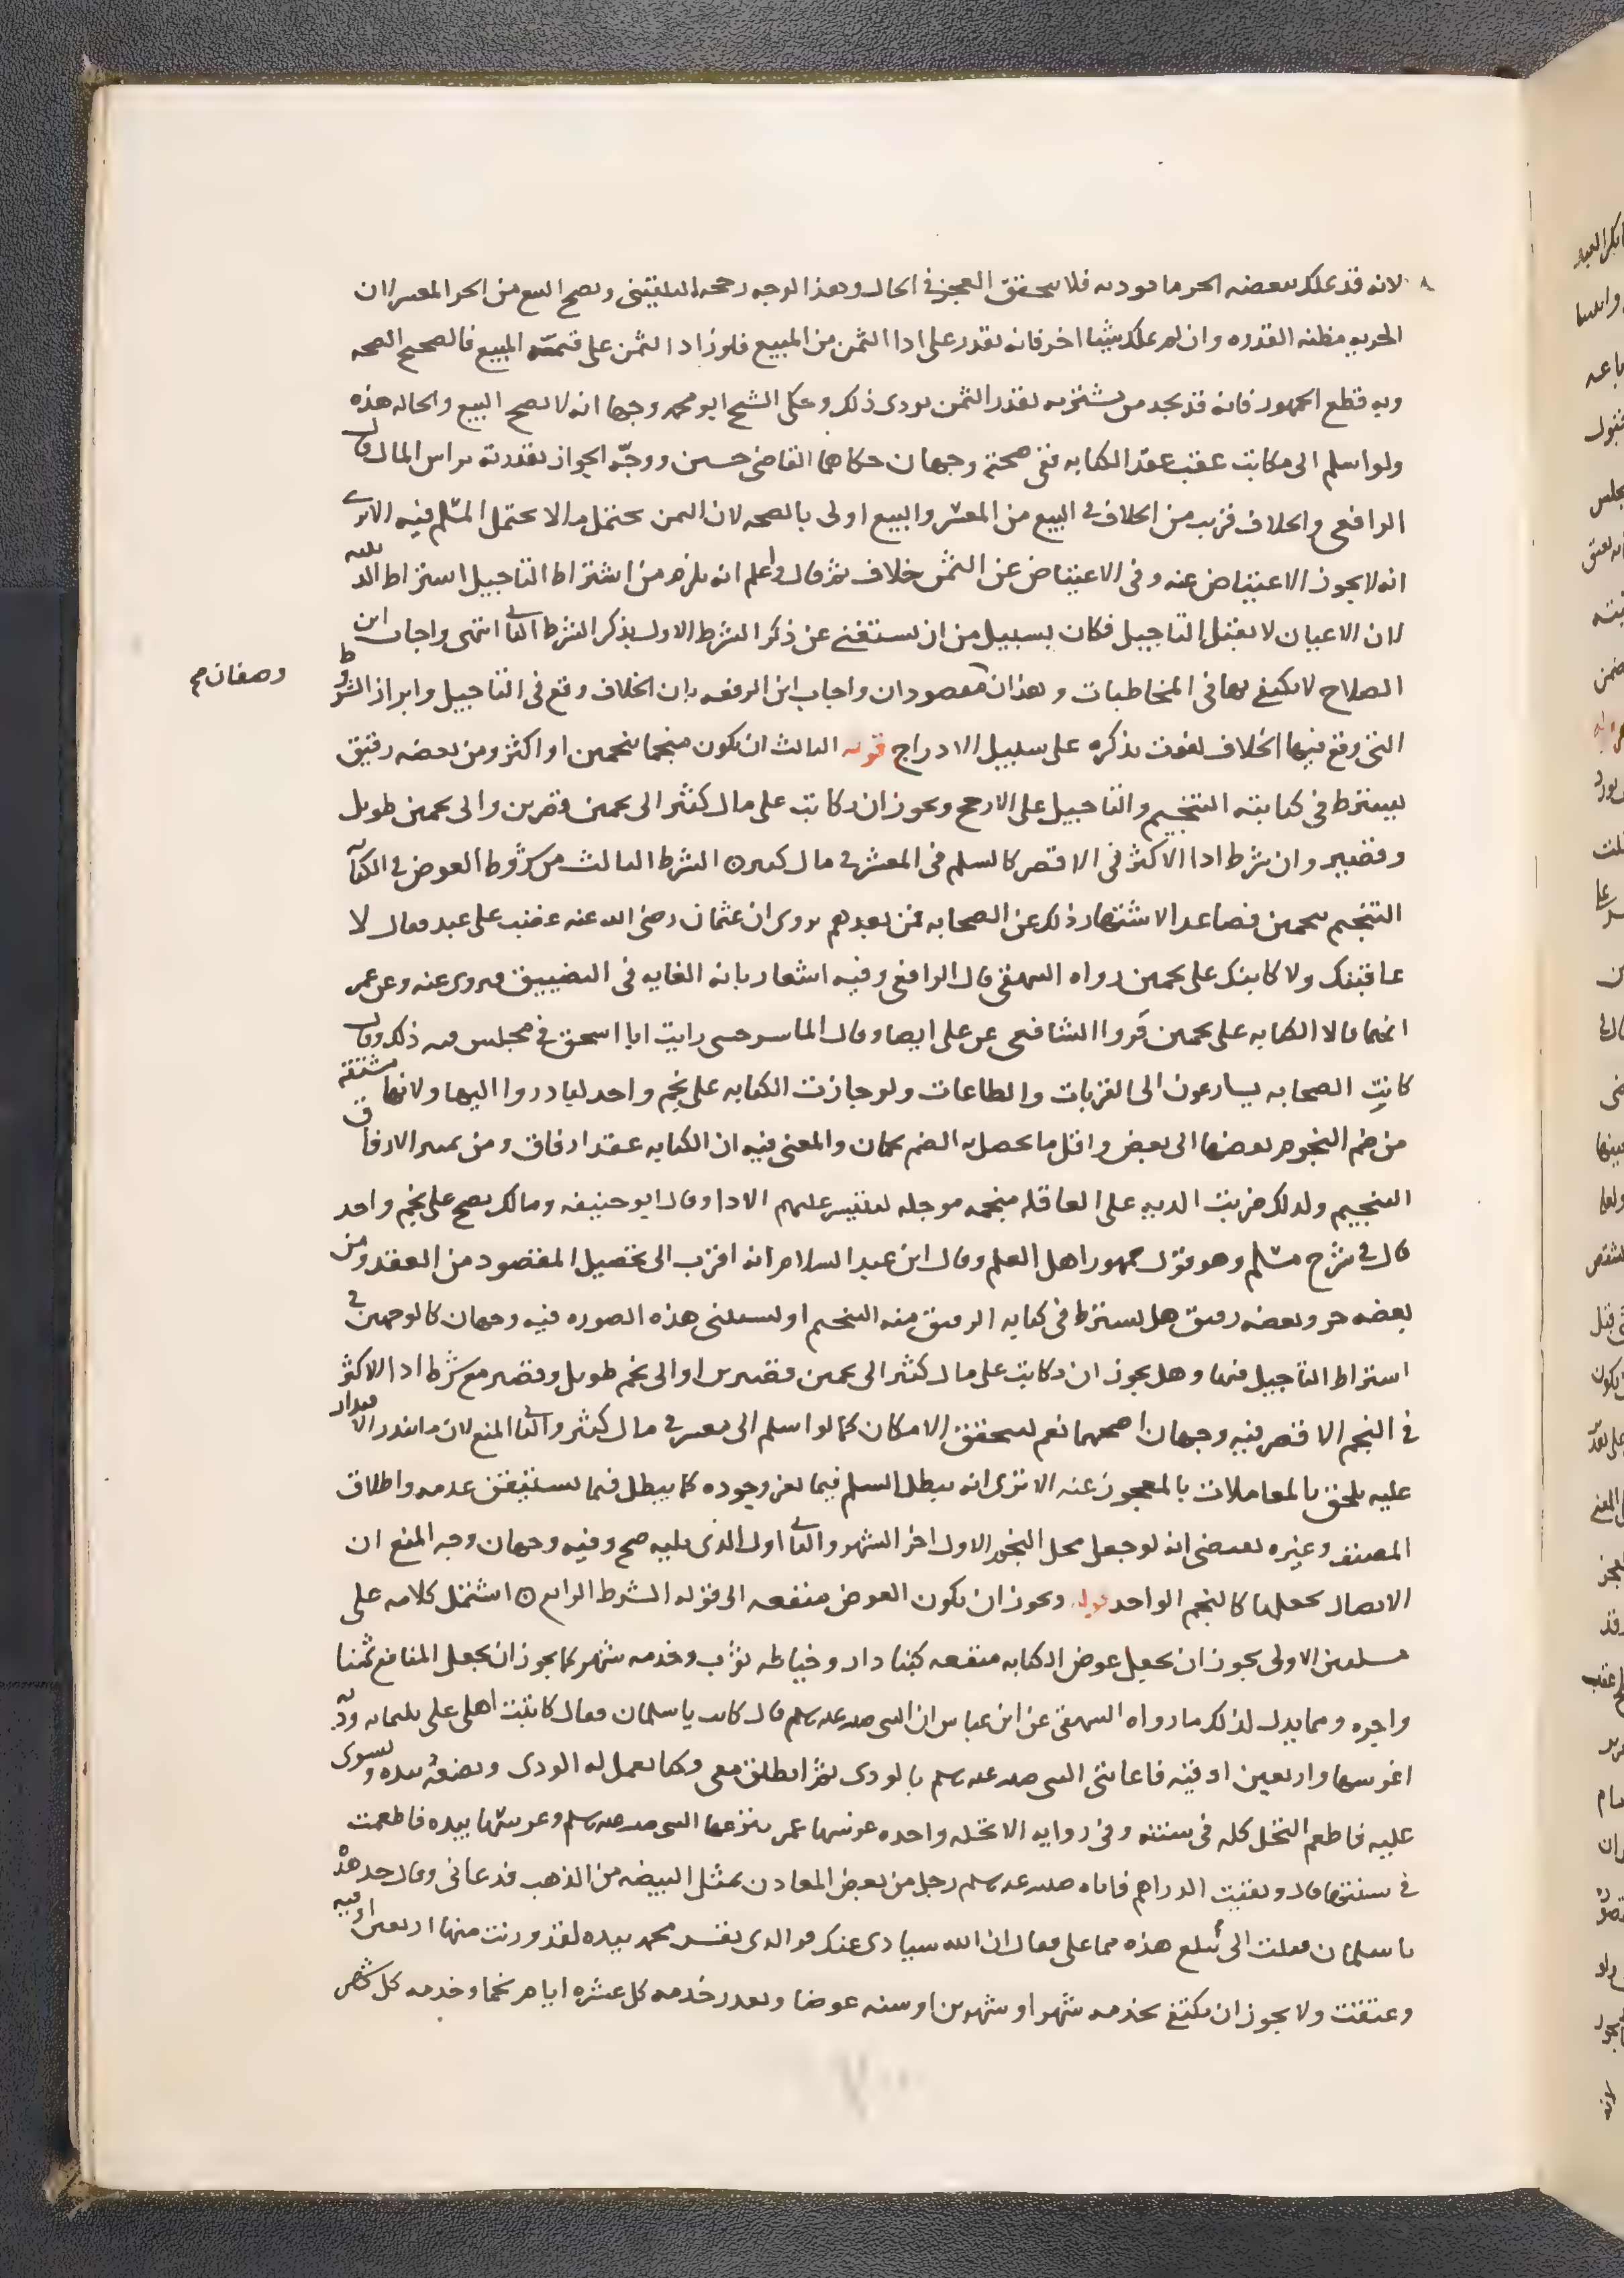 لانه قد يملك ببعضه الحر ما يوديه فلا يتحقق العجز في الحال وهذا الوجه رجحه البلقيني ويصح البيع من الحر المعسر لان
الحريه مظنه القدره وان لم يملك شيئا اخر فانه يقدر على ادا الثمن من المبيع فلو زاد الثمن على قيمة المبيع فالصحيح الصحه
وبه قطع الجمهور فانه قد يجد من يشتريه بقدر الثمن يودي ذلك وحكى الشيخ ابو محمد وجها انه لا يصح البيع والحاله هذه
ولو اسلم الى مكاتب عقب عقد الكتابه ففي صحته وجهان حكاهما القاضي حسين ووجّه الجواز بقدرته براس المال قال
الرافعي والخلاف قريب من الخلاف في البيع من المعسر والبيع اولى بالصحه لان الثمن يحتمل ما لا يحتمل المسلم فيه الا ترى
انه لا يجوز الاعتياض عنه وفي الاعتياض عن الثمن خلاف ثم قال واعلم انه يلزم من اشتراط التاجيل اشتراط الدينيه
لان الاعيان لا تقبل التاجيل فكان بسبيل من ان يستغنى عن ذكر الشرط الاول بذكر الشرط الثاني انتهى واجاب ابن
الصلاح لا يكتفي بها في المخاطبات وهذان مقصودان واجاب ابن الرفعه بان الخلاف وقع في التاجيل وابراز الشروط
وصفان م
التي وقع فيها الخلاف يفوت بذكره على سبيل الادراج قوله الثالث ان يكون منجما بنجمين او اكثر ومن بعضه رقيق
فيشترط في كتابته التنجيم والتاجيل على الارجح ويجوز ان يكاتب على مال كثير الى نجمين قصيرين والى نجمين طويل
وقصير وان شرط ادا الاكثر في الاقصر كالسلم في المعسر في مال كثير ٥ الشرط الثالث من شروط العوض في الكتابه
التنجيم بنجمين فصاعدا لاشتهار ذلك عن الصحابه فمن بعدهم وروى ان عثمان رضي الله عنه غضب على عبد فقال لا
عاقبنك ولا كاتبنك على نجمين رواه البيهقي قال الرافعي وفيه اشعار بانه الغايه في التضييق وروى عنه وعن عمر
انهما قالا الكتابه على نجمين وروا الشافعي عن علي ايضا وقال الماسرجسي رايت ابا اسحق في مجلس فيه ذلك وقال
كانت الصحابه يسارعون الى القربات والطاعات ولو جازت الكتابه على نجم واحد لبادروا اليها ولانها مشتقه
من ضم النجوم بعضها الى بعض واقل ما يحصل به الضم نجمان والمعنى فيه ان الكتابه عقد ارفاق ومن تتمه الارفاق
التنجيم ولذلك ضربت الديه على العاقله منجمه موجله ليتيسر عليهم الادا وقال ابو حنيفه ومالك يصح على نجم واحد
قال في شرح مسلم وهو قول جمهور اهل العلم وقال ابن عبد السلام انه اقرب الى تحصيل المقصود من العقد ومن
بعضه حر وبعضه رقيق هل يشترط في كتابه الرقيق منه التنجيم او يستثنى هذه الصوره فيه وجهان كالوجهين في
اشتراط التاجيل فيها وهل يجوز ان يكاتب على مال كثير الى نجمين قصيرين او الى نجم طويل وقصير مع شرط ادا الاكثر
في النجم الاقصر فيه وجهان اصحهما نعم ليتحقق الامكان كما لو اسلم الى معسر في مال كثير والثاني المنع لان ما يندر الاقتدار
عليه يلحق بالمعاملات بالمعجوز عنه الا ترى انه يبطل السلم فيما يعز وجوده كما يبطل فيما يستيقن عدمه واطلاق
المصنف وغيره يقتضي انه لو جعل محل النجم الاول اخر الشهر والثاني اول الذي يليه صح وفيه وجهان وجه المنع ان
الاتصال يجعلها كالنجم الواحد قوله ويجوز ان يكون العوض منفعه الى قوله الشرط الرابع ٥ اشتمل كلامه على
مسلتين الاولى يجوز ان يجعل عوض الكتابه منفعه كبنا دار وخياطه ثوب وخدمه شهر كما يجوز ان يجعل المنافع ثمنا
واجره ومما يدل لذلك ما رواه البيهقي عن ابن عباس ان النبي صلى الله عليه وسلم قال كاتب يا سلمان فقال كاتبت اهلي على ثلثمايه وديه
اغرسها واربعين اوقيه فاعانني النبي صلى الله عليه وسلم بالودي ثم انطلق معي وكنا نحمل له الودي ويضعه بيده ويسوي
عليه فاطعم النخل كله في سنته وفي روايه الا نخله واحده غرسها عمر فنزعها النبي صلى الله عليه وسلم وغرسها بيده فاطعمت
في سنتها قال وبقيت الدراهم فاتاه صلى الله عليه وسلم رجل من بعض المعادن بمثل البيضه من الذهب فدعاني وقال خذ هذه
يا سلمان فقلت اي تبلغ هذه مما علي فقال ان الله سيادي عنك فوالذي نفس محمد بيده لقد وزنت منها اربعين اوقيه
وعتقت ولا يجوز ان يكتفي بخدمه شهر او شهرين او سنه عوضا ويقدر خدمه كل عشره ايام نجما وخدمه كل شهر